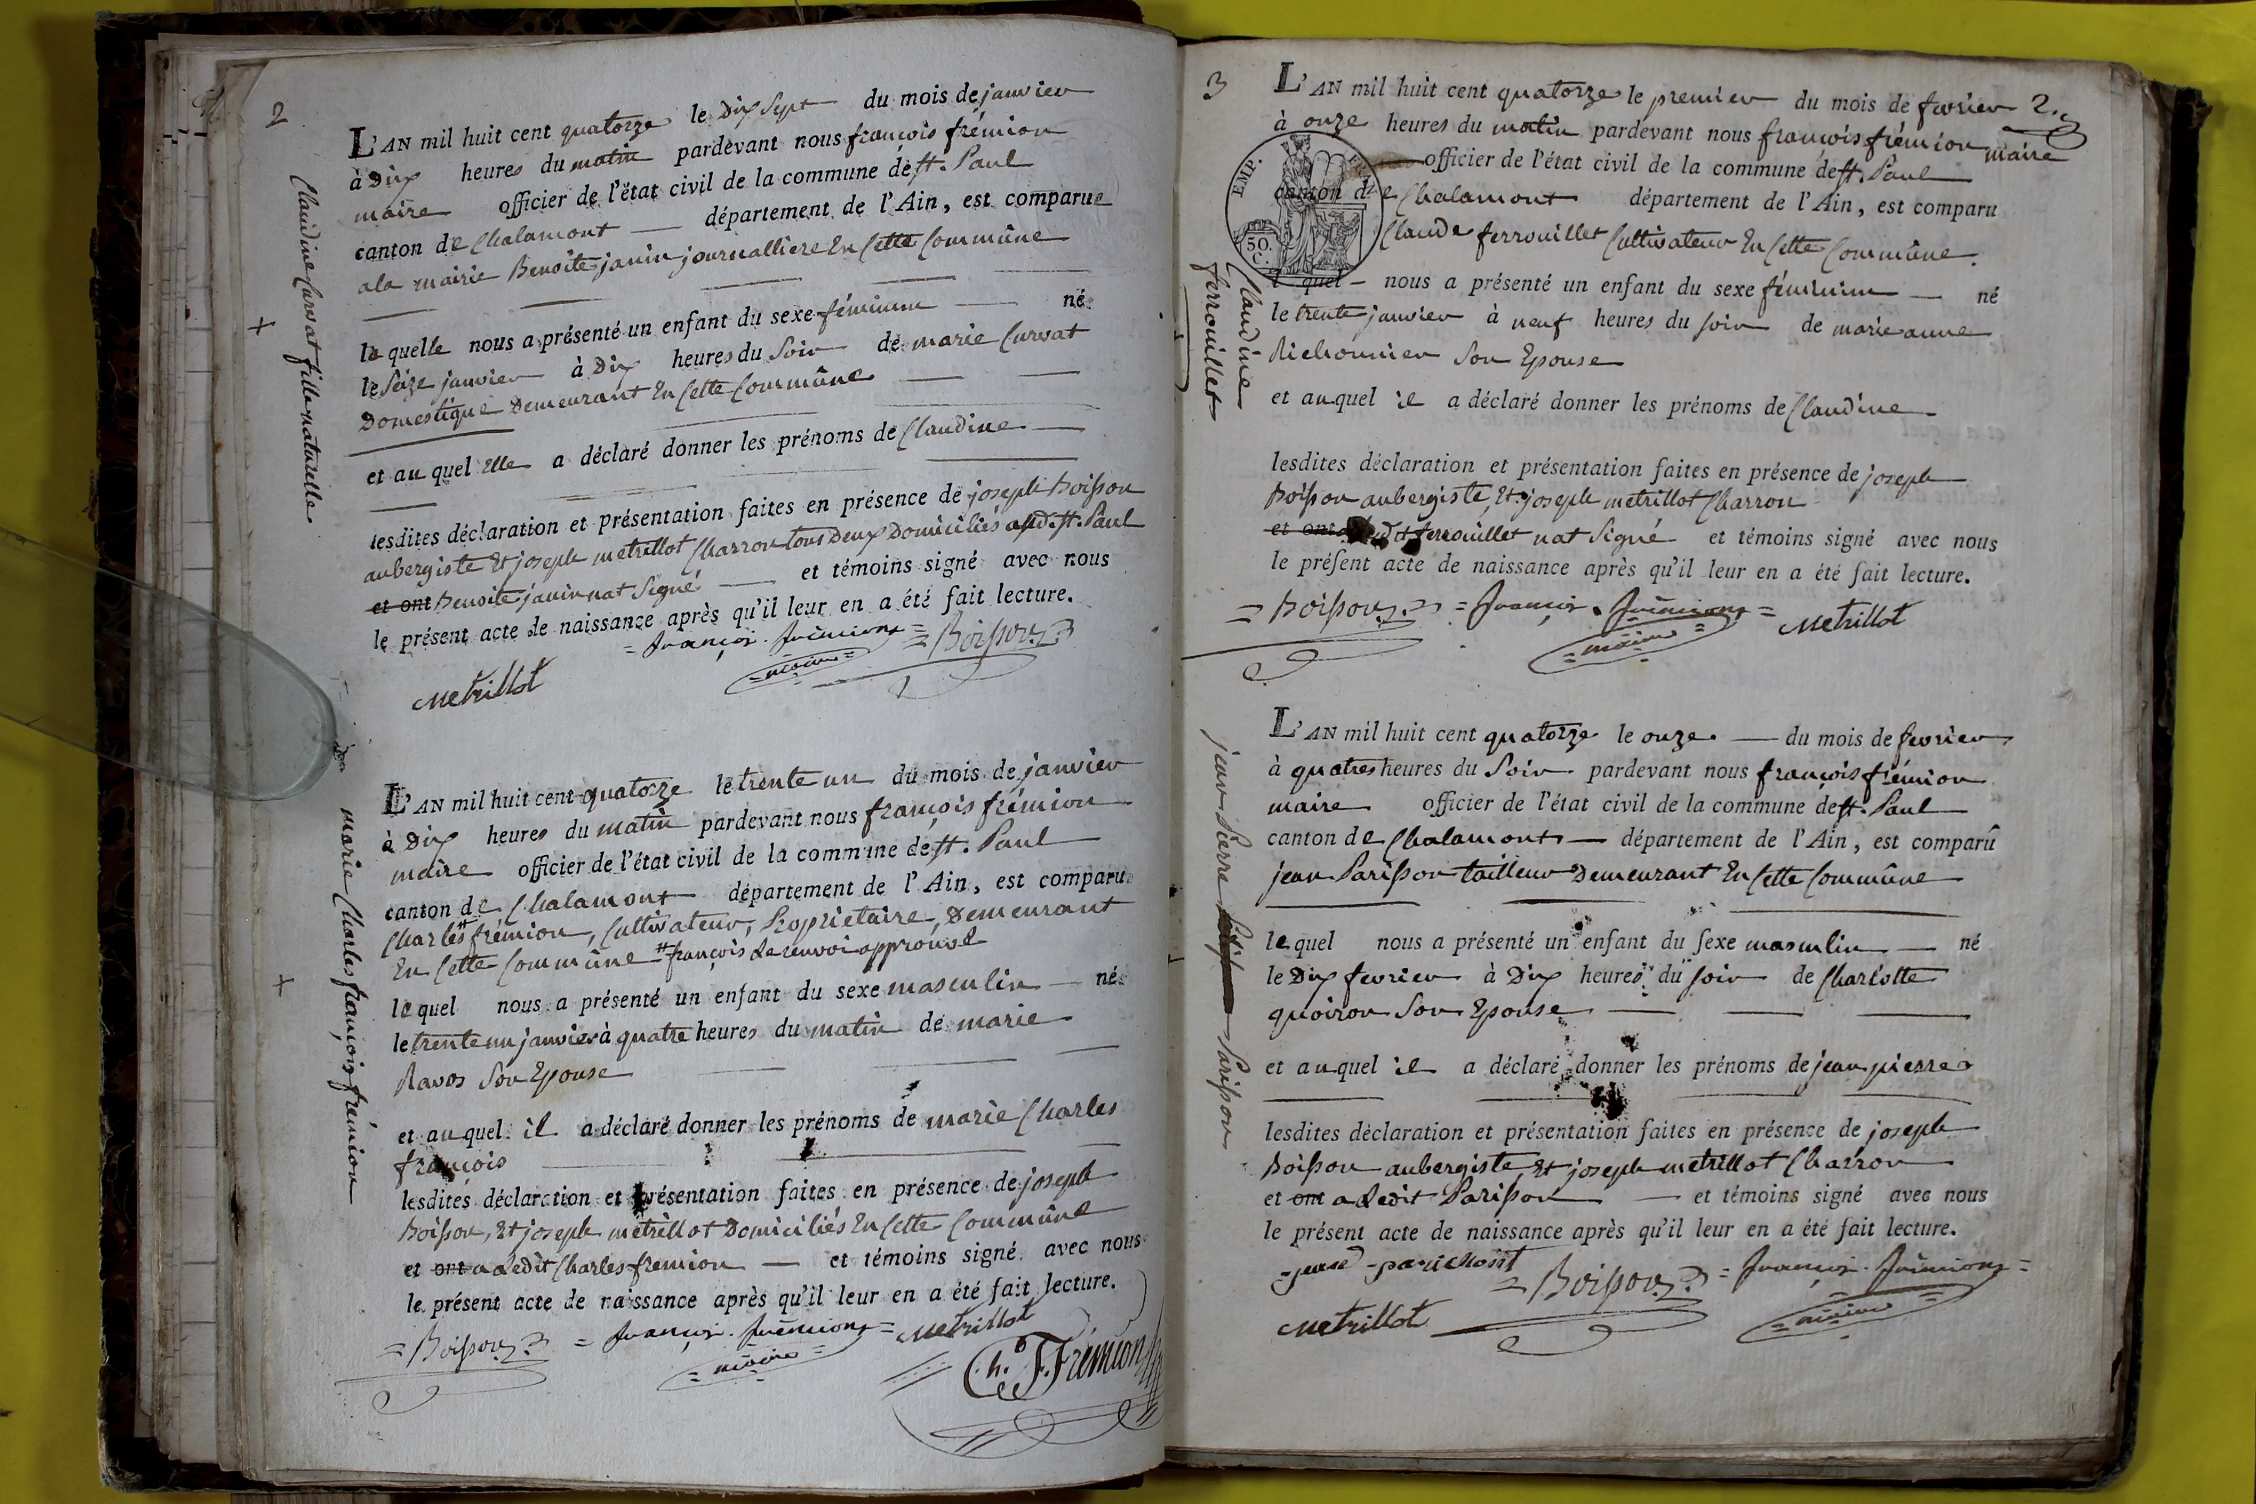 2
Claudine Curvat fille naturelle
L'AN mil huit cent quatorze le Dix Sept du mois de janvier
à Dix heures du matin pardevant nous françois frémion
maire officier de l'état civil de la commune de st. Paul
canton de Chalamont département de l'Ain, est comparue
a la mairie Benoite janin journalliere En Cette Commune
laquelle nous a présenté un enfant du sexe féminin né
le Seize janvier à Dix heures du Soir de marie Curvat
Domestique Demeurant En Cette Commune
et au quel Elle a déclaré donner les prénoms de Claudine
lesdites déclaration et présentation faites en présence de joseph Boisson
aubergiste Et joseph metrillot Charron tous Deux Domiciliés aud. st. Paul
et ont Benoite janin nat Signé et témoins signé avec nous
le présent acte de naissance après qu'il leur en a été fait lecture.
= françois. frémion = = Boisson
maire
Metrillot
marie Charles françois frémion
L'AN mil huit cent quatorze le trente un du mois de janvier
à Dix heures du matin pardevant nous françois frémion
maire officier de l'état civil de la commune de st. Paul
canton de Chalamont département de l'Ain, est comparu
Charles # frémion, Cultivateur, Propriétaire, Demeurant
En Cette Commune # françois Le renvoi approuvé
lequel nous a présenté un enfant du sexe masculin né
le trente un janvier à quatre heures du matin de marie
Ravos Son Epouse
et auquel il a déclaré donner les prénoms de marie Charles
françois
lesdites déclaration et présentation faites en présence de joseph
Boisson, Et joseph metrillot Domiciliés En Cette Commune
et ont a Ledit Charles fremion et témoins signé avec nous
le présent acte de naissance après qu'il leur en a été fait lecture.
= Boisson = françois. frémion = Metrillot
maire
Ch. F. Frémion
3
2.
Claudine
ferrouillet
L'AN mil huit cent quatorze le premier du mois de fevrier
à onze heures du matin pardevant nous françois frémion maire
officier de l'état civil de la commune de st. Paul
canton de Chalamont département de l'Ain, est comparu
EMP.
50.
C.
Claude ferrouillet Cultivateur En Cette Commune.
lequel nous a présenté un enfant du sexe féminin né
le trente janvier à neuf heures du soir de marie anne
Richonnier Son Epouse
et auquel il a déclaré donner les prénoms de Claudine
lesdites déclaration et présentation faites en présence de joseph
Boisson aubergiste, Et joseph metrillot Charron
et ont ledit ferrouillet nat Signé et témoins signé avec nous
le présent acte de naissance après qu'il leur en a été fait lecture.
= Boisson = françois. frémion = Metrillot
= maire =
jean Pierre Parisson
L'AN mil huit cent quatorze le onze du mois de fevrier
à quatres heures du Soir pardevant nous françois frémion
maire officier de l'état civil de la commune de st. Paul
canton de Chalamont département de l'Ain, est comparû
jean Parisson tailleur Demeurant En Cette Commune
lequel nous a présenté un enfant du sexe masculin né
le Dix fevrier à Dix heures du soir de Charlotte
quoiron Son Epouse
et auquel il a déclaré donner les prénoms de jean pierre
lesdites déclaration et présentation faites en présence de joseph
Boisson aubergiste Et joseph metrillot Charron
et ont a Ledit Parisson et témoins signé avec nous
le présent acte de naissance après qu'il leur en a été fait lecture.
= Boisson = françois. frémion =
Metrillot
= maire =